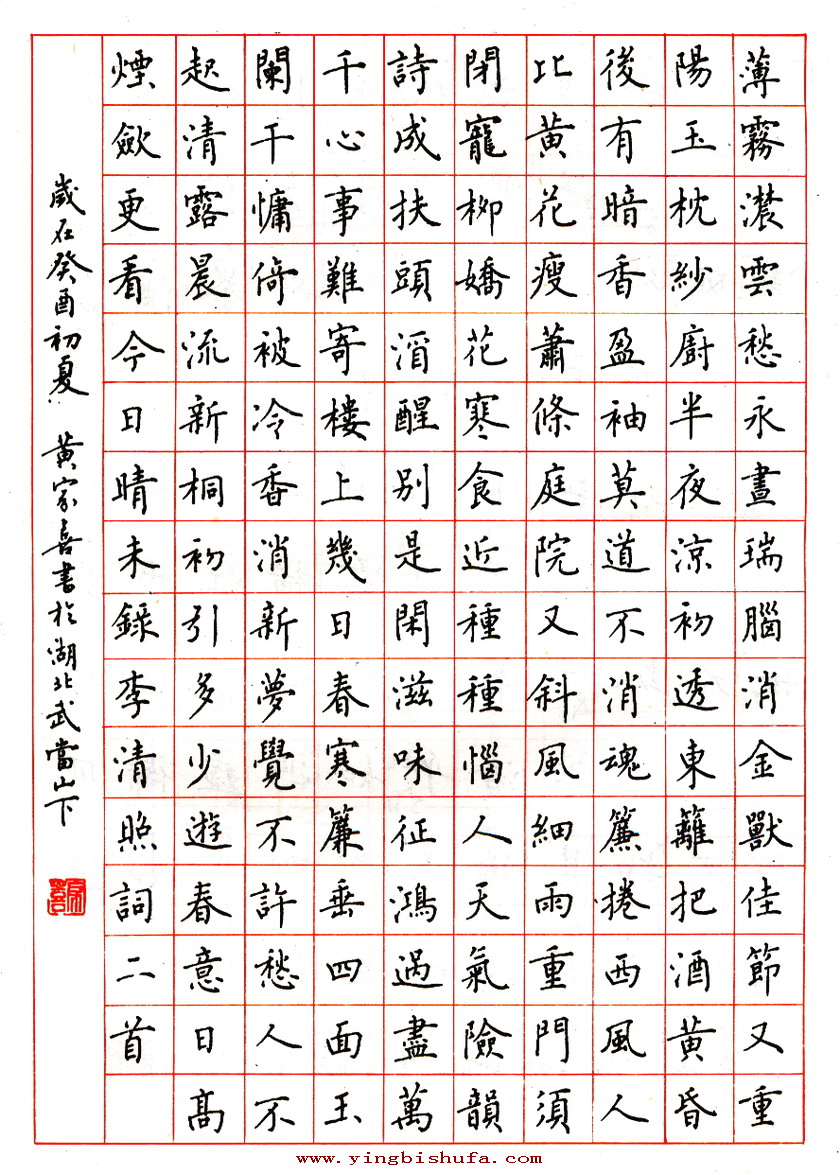 薄霧濃雲愁永晝瑞腦消金獸佳節又重
陽玉枕紗廚半夜涼初透東籬把酒黃昏
後有暗香盈袖莫道不消魂簾捲西風人
比黃花瘦蕭條庭院又斜風細雨重門須
閉寵柳嬌花寒食近種種惱人天氣險韻
詩成扶頭酒醒別是閑滋味征鴻過盡萬
千心事難寄樓上幾日春寒簾垂四面玉
闌干慵倚被冷香消新夢覺不許愁人不
起清露晨流新桐初引多少遊春意日高
煙斂更看今日晴未錄李清照詞二首
歲在癸酉初夏 黃家喜書於湖北武當山下
家喜
www.yingbishufa.com